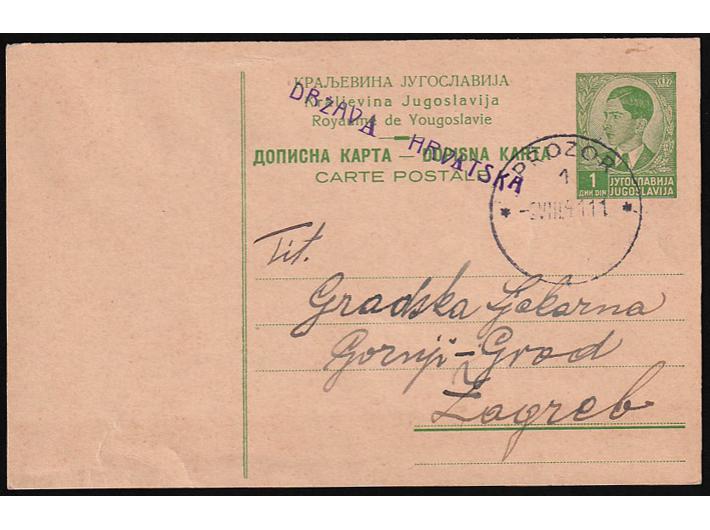 КРАЉЕВИНА ЈУГОСЛАВИЈА
Kraljevina Jugoslavija
Royaume de Yougoslavie
DRŽAVA HRVATSKA
ДОПИСНА КАРТА — DOPISNA KARTA
CARTE POSTALE
1
ДИН DIN
ЈУГОСЛАВИЈА
JUGOSLAVIJA
PROZOR
1
Tit.
Gradska Ljekarna
Gornji-Grad
Zagreb